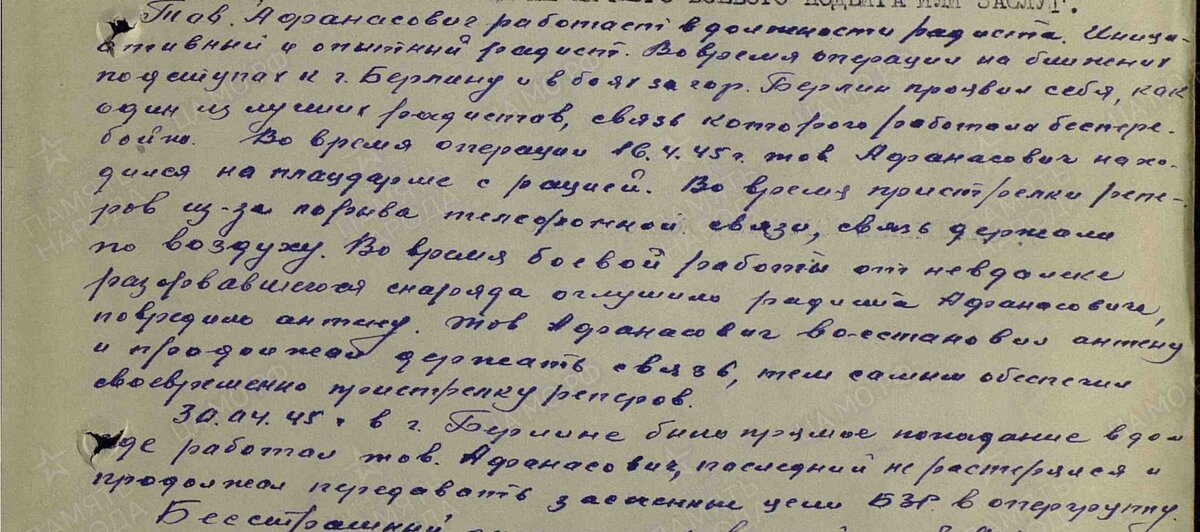 БОЕВОГО ПОДВИГА ИЛИ ЗАСЛУГ.
Тов. Афанасович работает в должности радиста. Иници-
ативный и опытный радист. Во время операции на ближних
подступах к г. Берлину и в боях за гор. Берлин проявил себя, как
один из лучших радистов, связь которого работала беспере-
бойно. Во время операции 16.4.45 г. тов Афанасович нахо-
дился на плацдарме с рацией. Во время пристрелки репе-
ров из-за порыва телефонной связи, связь держали
по воздуху. Во время боевой работы от невдалеке
разорвавшегося снаряда оглушило радиста Афанасовича,
повредило антену. Тов Афанасович восстановил антену
и продолжал держать связь, тем самым обеспечил
своевременно пристрелку реперов.
30.04.45 г в г. Берлине было прямое попадание в дом
где работал тов. Афанасович, последний не растерялся и
продолжал передавать засеченные цели БЗР в опергруппу.
Бесстрашный